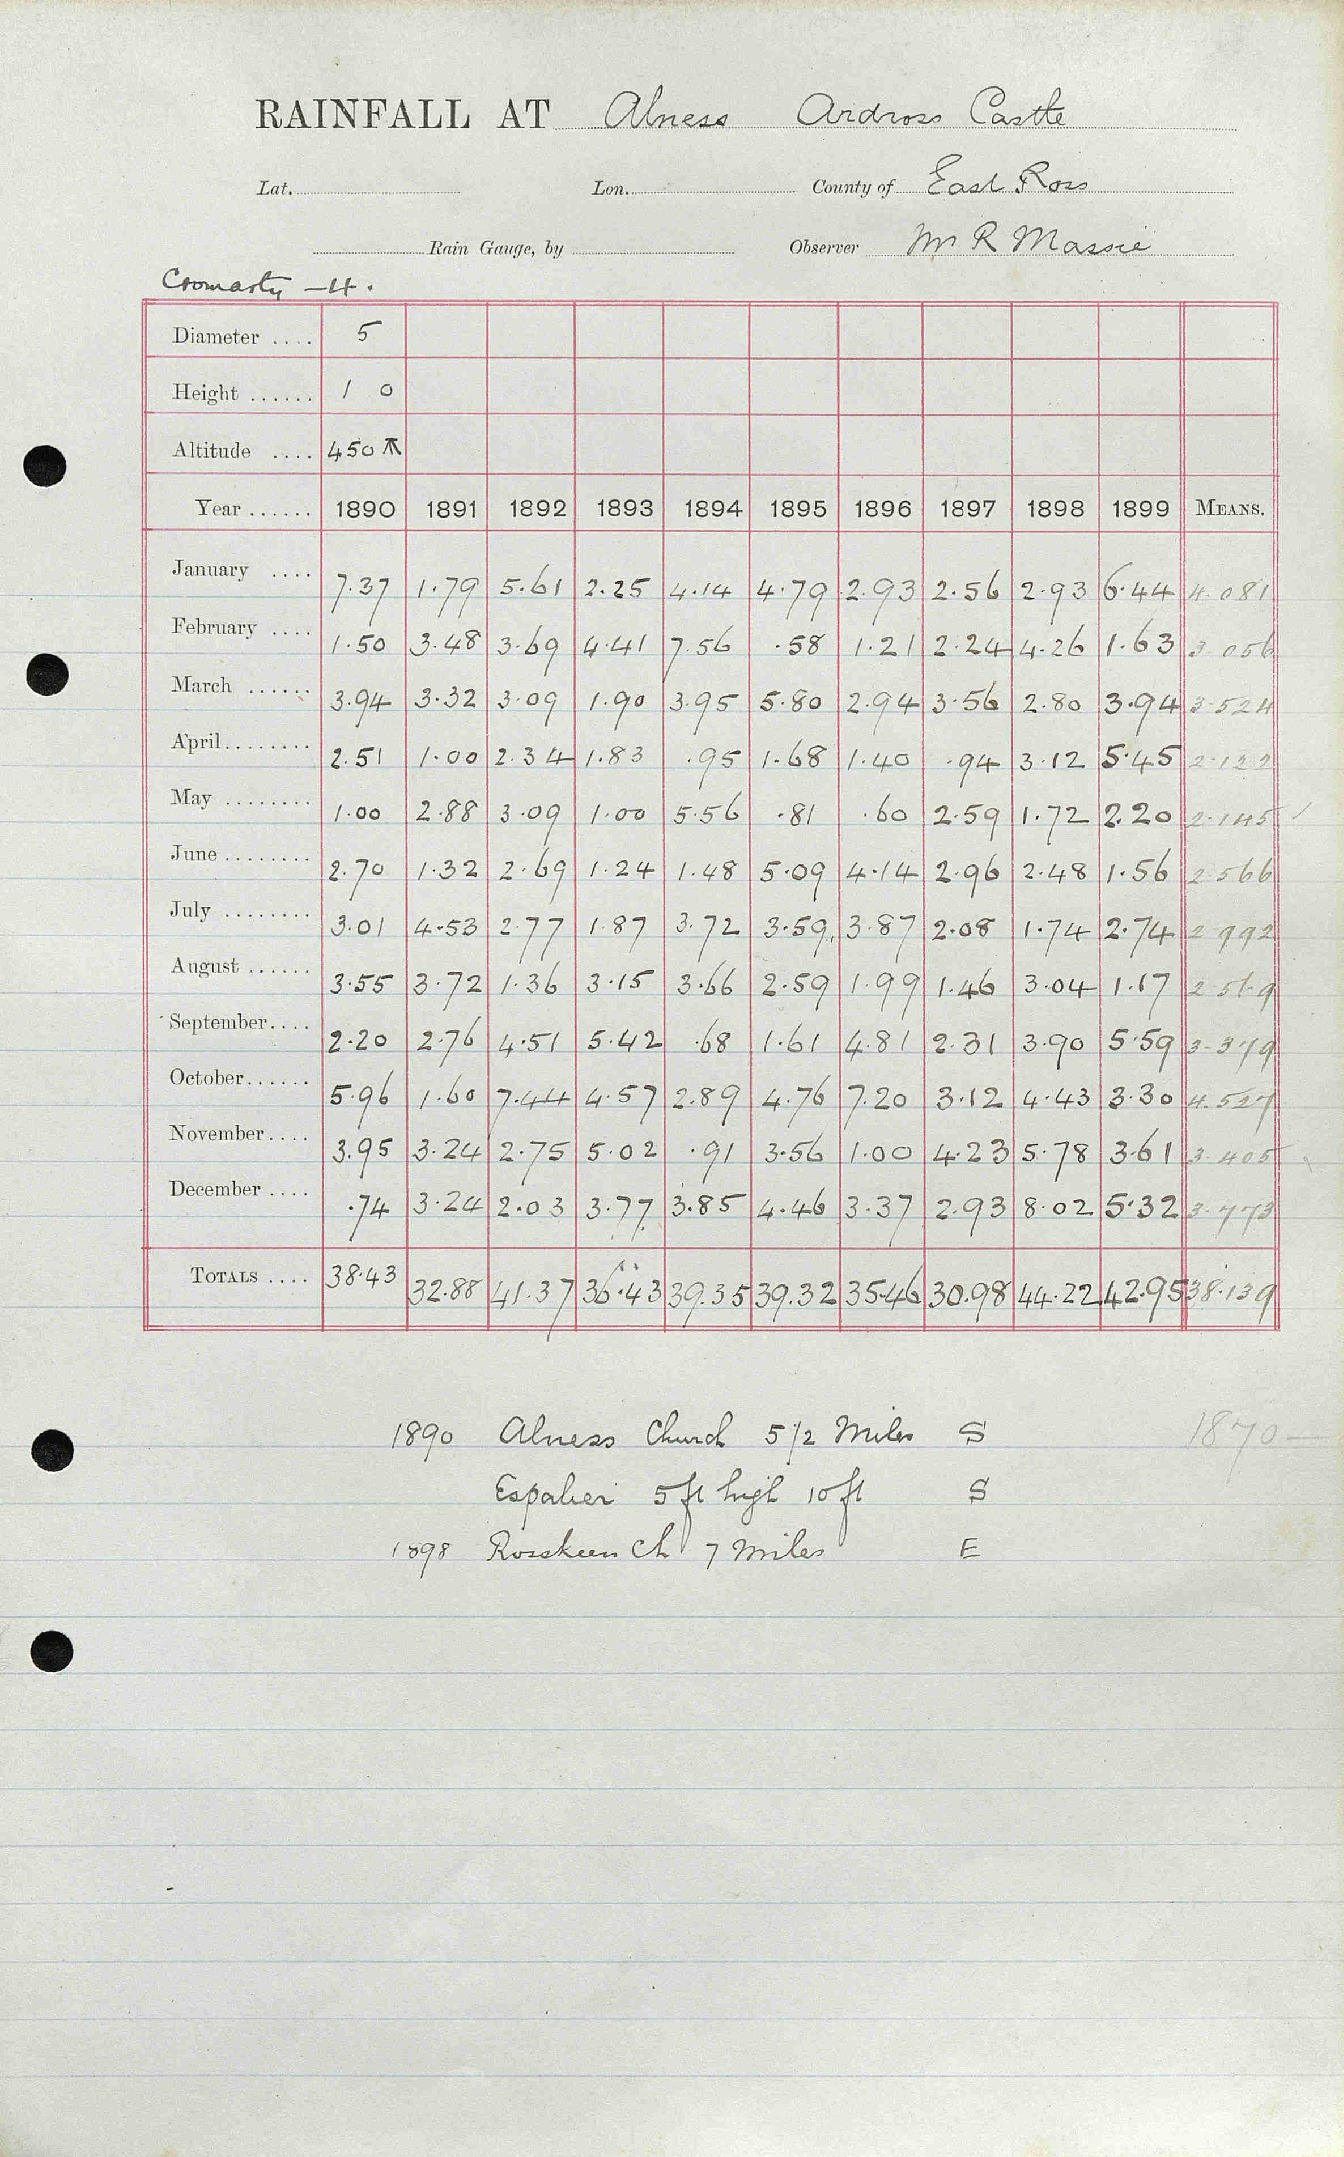 RAINFALL AT Alness Ardross Castle
Lat. Lon. County of East Ross
Rain Gauge, by Observer Mr R Massie
Cromarty -4.
Diameter .... 5
Height ...... 1 0
Altitude .... 450
Year ...... 1890 1891 1892 1893 1894 1895 1896 1897 1898 1899 MEANS.
January .... 7.37 1.79 5.61 2.25 4.14 4.79 2.93 2.56 2.93 6.44 4.081
February .... 1.50 3.48 3.69 4.41 7.56 .58 1.21 2.24 4.26 1.63 3.056
March ...... 3.94 3.32 3.09 1.90 3.95 5.80 2.94 3.56 2.80 3.94 3.524
April ........ 2.51 1.00 2.34 1.83 .95 1.68 1.40 .94 3.12 5.45 2.122
May ........ 1.00 2.88 3.09 1.00 5.56 .81 .60 2.59 1.72 2.20 2.145
June ........ 2.70 1.32 2.69 1.24 1.48 5.09 4.14 2.96 2.48 1.56 2.566
July ........ 3.01 4.53 2.77 1.87 3.72 3.59 3.87 2.08 1.74 2.74 2.992
August ...... 3.55 3.72 1.36 3.15 3.66 2.59 1.99 1.46 3.04 1.17 2.569
September.... 2.20 2.76 4.51 5.42 .68 1.61 4.81 2.31 3.90 5.59 3.379
October...... 5.96 1.60 7.44 4.57 2.89 4.76 7.20 3.12 4.43 3.30 4.527
November.... 3.95 3.24 2.75 5.02 .91 3.56 1.00 4.23 5.78 3.61 3.405
December .... .74 3.24 2.03 3.77 3.85 4.46 3.37 2.93 8.02 5.32 3.773
TOTALS .... 38.43 32.88 41.37 36.43 39.35 39.32 35.46 30.98 44.22 42.95 38.139
1890 Alness Church 5 1/2 Miles S 1870 —
Espalier 5 ft high 10 ft S
1898 Rosskeen Ch 7 miles E